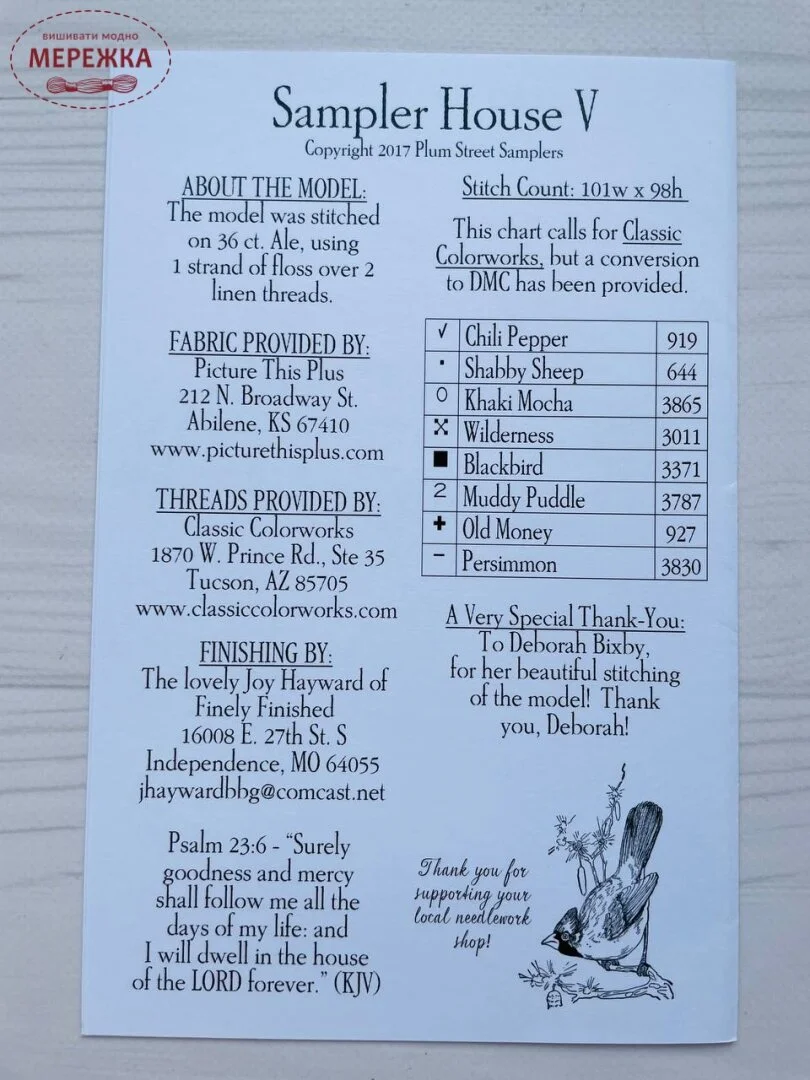 вишивати модно
МЕРЕЖКА
Sampler House V
Copyright 2017 Plum Street Samplers
ABOUT THE MODEL:
The model was stitched
on 36 ct. Ale, using
1 strand of floss over 2
linen threads.
FABRIC PROVIDED BY:
Picture This Plus
212 N. Broadway St.
Abilene, KS 67410
www.picturethisplus.com
THREADS PROVIDED BY:
Classic Colorworks
1870 W. Prince Rd., Ste 35
Tucson, AZ 85705
www.classiccolorworks.com
FINISHING BY:
The lovely Joy Hayward of
Finely Finished
16008 E. 27th St. S
Independence, MO 64055
jhaywardbbg@comcast.net
Psalm 23:6 - “Surely
goodness and mercy
shall follow me all the
days of my life: and
I will dwell in the house
of the LORD forever.” (KJV)
Stitch Count: 101w x 98h
This chart calls for Classic
Colorworks, but a conversion
to DMC has been provided.
✓ Chili Pepper 919
· Shabby Sheep 644
O Khaki Mocha 3865
X Wilderness 3011
■ Blackbird 3371
2 Muddy Puddle 3787
+ Old Money 927
– Persimmon 3830
A Very Special Thank-You:
To Deborah Bixby,
for her beautiful stitching
of the model! Thank
you, Deborah!
Thank you for
supporting your
local needlework
shop!